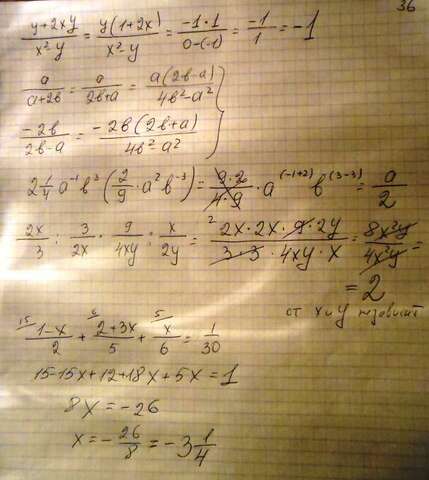 36
(y+2xy)/(x²-y) = y(1+2x)/(x²-y) = (-1·1)/(0-(-1)) = -1/1 = -1
a/(a+2b) = a/(2b+a) = a(2b-a)/(4b²-a²)
-2b/(2b-a) = -2b(2b+a)/(4b² a²)
2 1/4 a⁻¹ b³ (2/9 · a² b⁻³) = (9·2)/(4·9) · a⁽⁻¹⁺²⁾ b⁽³⁻³⁾ = a/2
2x/3 : 3/2x · 9/4xy : x/2y = ² (2x·2x·9·2y)/(3·3·4xy·x) = 8x²y/4x²y =
= 2
от x и y не зависит
¹⁵ (1-x)/2 + ⁶ (2+3x)/5 + ⁵ x/6 = 1/30
15-15x+12+18x+5x = 1
8x = -26
x = -26/8 = -3 1/4